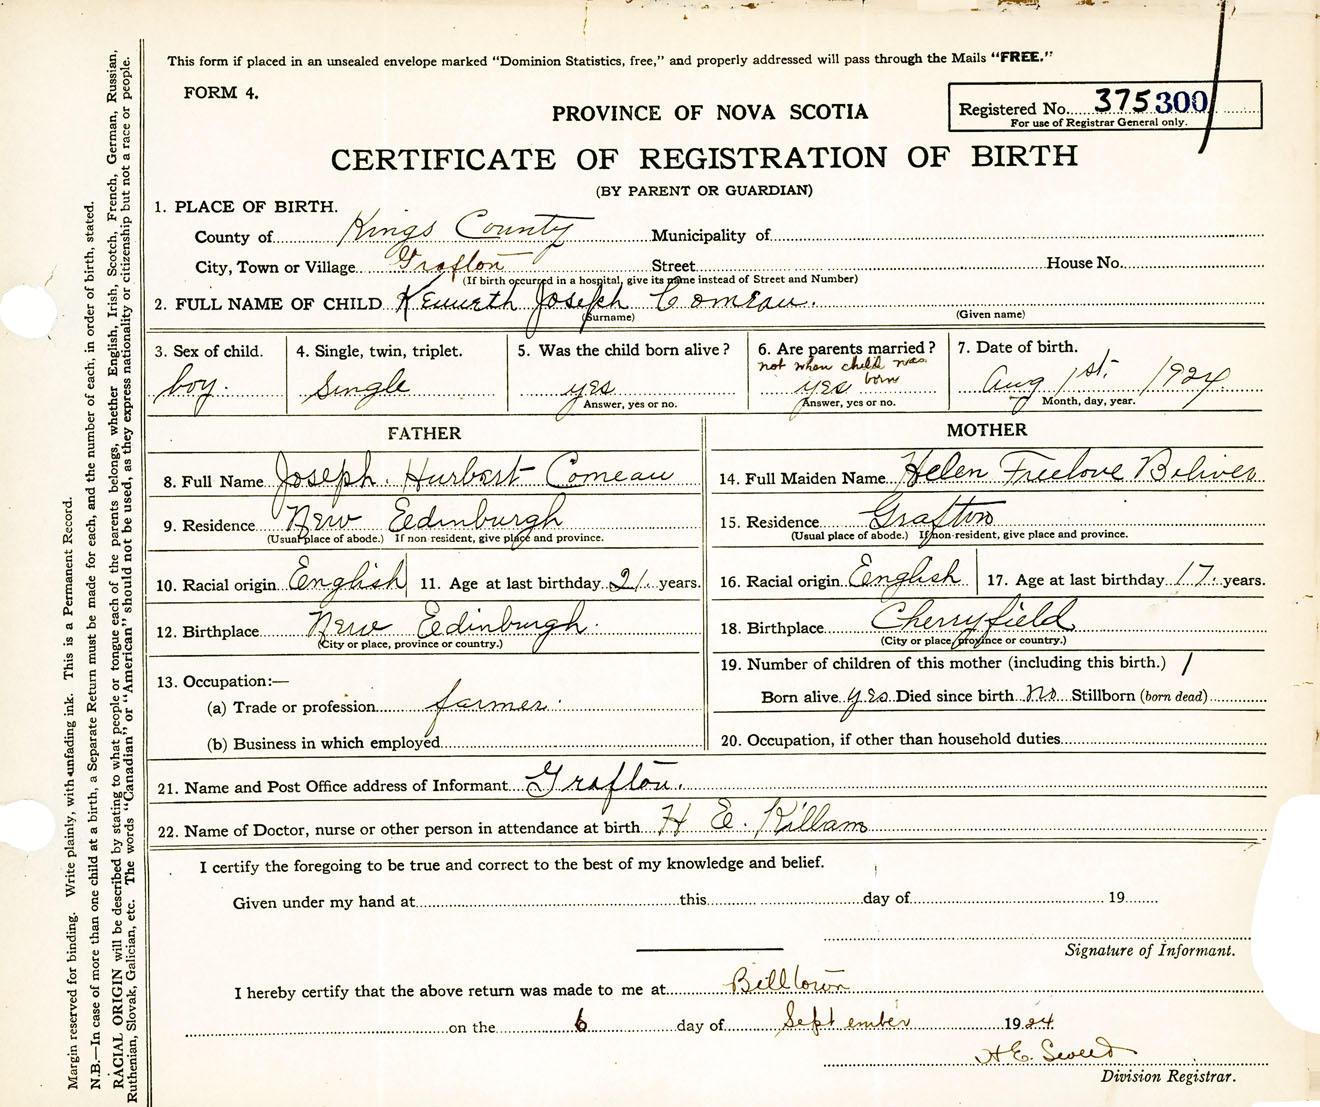 This form if placed in an unsealed envelope marked "Dominion Statistics, free," and properly addressed will pass through the Mails "FREE."
FORM 4.
PROVINCE OF NOVA SCOTIA
Registered No. 375300
For use of Registrar General only.
CERTIFICATE OF REGISTRATION OF BIRTH
(BY PARENT OR GUARDIAN)
1. PLACE OF BIRTH.
County of Kings County Municipality of
City, Town or Village Grafton Street House No.
(If birth occurred in a hospital, give its name instead of Street and Number)
2. FULL NAME OF CHILD Kenneth Joseph Comeau.
(Surname) (Given name)
3. Sex of child. 4. Single, twin, triplet. 5. Was the child born alive? 6. Are parents married? 7. Date of birth.
not when child was born
boy. Single yes yes Aug 1st. 1924
Answer, yes or no. Answer, yes or no. Month, day, year.
FATHER MOTHER
8. Full Name Joseph. Hurbert Comeau 14. Full Maiden Name Helen Freelove Boliver
9. Residence New Edinburgh 15. Residence Grafton
(Usual place of abode.) If non-resident, give place and province. (Usual place of abode.) If non-resident, give place and province.
10. Racial origin English 11. Age at last birthday 21 years. 16. Racial origin English 17. Age at last birthday 17 years.
12. Birthplace New Edinburgh. 18. Birthplace Cherryfield
(City or place, province or country.) (City or place, province or country.)
19. Number of children of this mother (including this birth.) 1
13. Occupation:—
Born alive yes Died since birth no Stillborn (born dead)
(a) Trade or profession farmer.
(b) Business in which employed 20. Occupation, if other than household duties
21. Name and Post Office address of Informant Grafton.
22. Name of Doctor, nurse or other person in attendance at birth H E. Killam
I certify the foregoing to be true and correct to the best of my knowledge and belief.
Given under my hand at this day of 19
Signature of Informant.
I hereby certify that the above return was made to me at Billtown
on the 6 day of September 1924
H.E. Sweet
Division Registrar.
Margin reserved for binding. Write plainly, with unfading ink. This is a Permanent Record.
N.B.—In case of more than one child at a birth, a Separate Return must be made for each, and the number of each, in order of birth, stated.
RACIAL ORIGIN will be described by stating to what people or tongue each of the parents belongs, whether English, Irish, Scotch, French, German, Russian,
Ruthenian, Slovak, Galician, etc. The words "Canadian" or "American" should not be used, as they express nationality or citizenship but not a race or people.